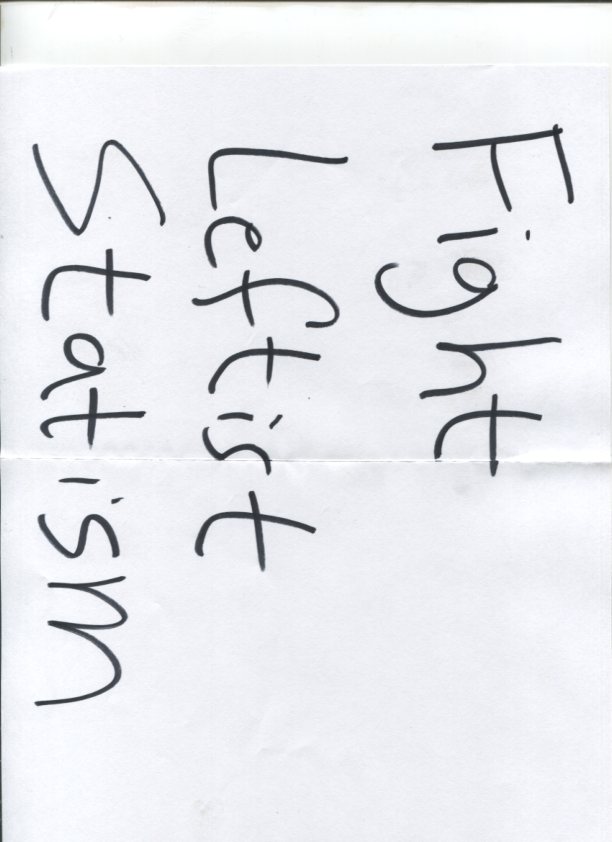 Fight
Leftist
Statism